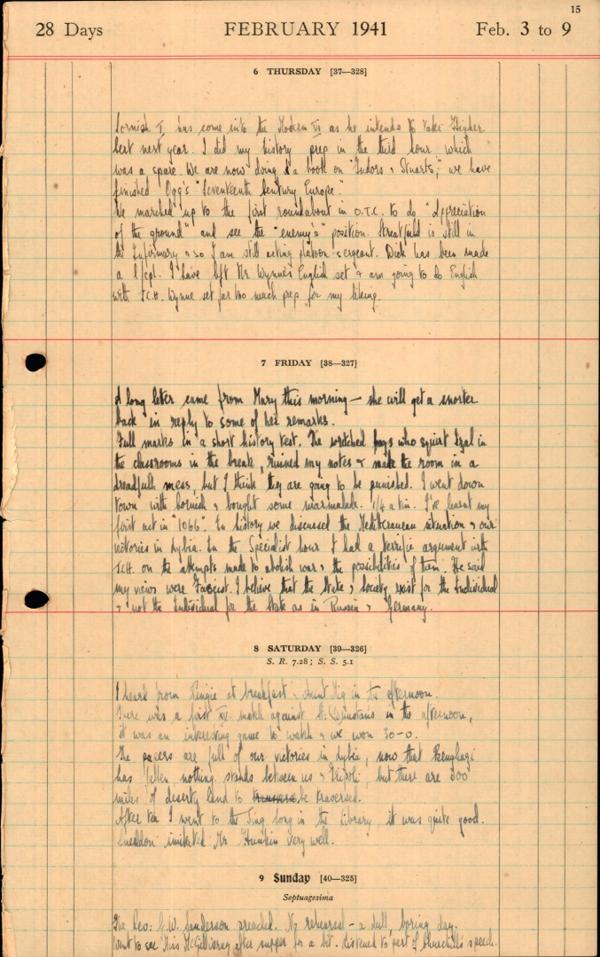 15
28 Days FEBRUARY 1941 Feb. 3 to 9
6 THURSDAY [37—328]
Cornish I has come into the Modern VI as he intends to take Higher
Cert next year. I did my history prep in the third hour which
was a spare. We are now doing a book on "Tudors & Stuarts," we have
finished Ogg's "Seventeenth Century Europe."
We marched up to the first roundabout in O.T.C. to do "appreciation
of the ground" and see the "enemy's" position. Streatfeild is still in
the Infirmary & so I am still acting platoon-sergeant. Dick has been made
a l/cpl. I have left Mr Wynne's English set & am going to do English
with J.C.H. Wynne set far too much prep for my liking.
7 FRIDAY [38—327]
A long letter came from Mary this morning — she will get a snorter
back in reply to some of her remarks.
Full marks in a short history test. The wretched fags who squirt Izal in
the classrooms in the break, ruined my notes & make the room in a
dreadful mess, but I think they are going to be punished. I went down
town with Cornish & bought some marmalade. 1/4 a tin. I've learnt my
first act in "1066". In history we discussed the Mediterranean situation & our
victories in Lybia. In the Specialist hour I had a terrific argument with
J.C.H. on the attempts made to abolish war & the possibilities of them. He said
my views were Fascist. I believe that the State & society exist for the Individual
& not the Individual for the State as in Russia & Germany.
8 SATURDAY [39—326]
S. R. 7.28; S. S. 5.1
I heard from Pingie at breakfast & Aunt Vig in the afternoon.
There was a first XV match against St. Dunstan's in the afternoon,
it was an interesting game to watch & we won 30-0.
The papers are full of our victories in Lybia, now that Benghazi
has fallen nothing stands between us & Tripoli, but there are 300
miles of deserty land to be traversed.
After tea I went to the Sing Song in the Library, it was quite good.
Sneddon imitated Mr Hunkin very well.
9 Sunday [40—325]
Septuagesima
The Rev: G.W. Sanderson preached. No rehearsal - a dull, boring day.
Went to see Miss McGillivray after supper for a bit. Listened to part of Churchill's speech.